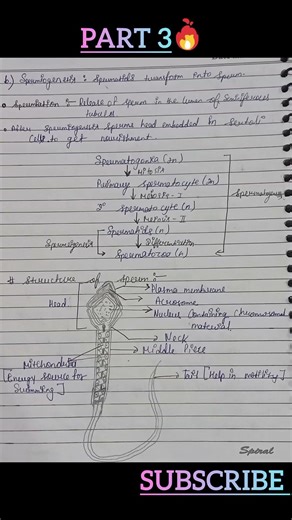 PART 3🔥
b) Spermiogenesis : Spermatids transform into sperm.
• Spermiation :- Release of sperm in the lumen of Seminiferous
tubules
• After spermiogenesis sperms head embedded in Sertoli
cells to get nourishment.
Spermatogonia (2n)
↓ Mitosis
Primary spermatocyte (2n)
↓ Meiosis - I
2° Spermatocyte (n)
↓ Meiosis - II
Spermatids (n)
↓ Differentiation
Spermatozoa (n)
Spermatogenesis
Spermiogenesis
# Structure of sperm :-
Plasma membrane
Head
Acrosome
Nucleus containing chromosomal
material
Neck
Middle Piece
Mitochondria
[Energy source for
Swimming]
Tail [Help in motility]
Spiral
SUBSCRIBE